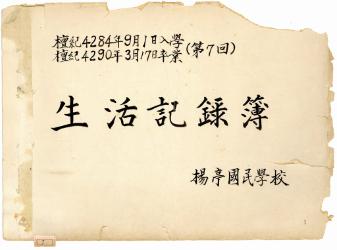 檀紀4284年9月1日入學
檀紀4290年3月17日卒業
(第7回)
生活記録簿
楊亭國民學校